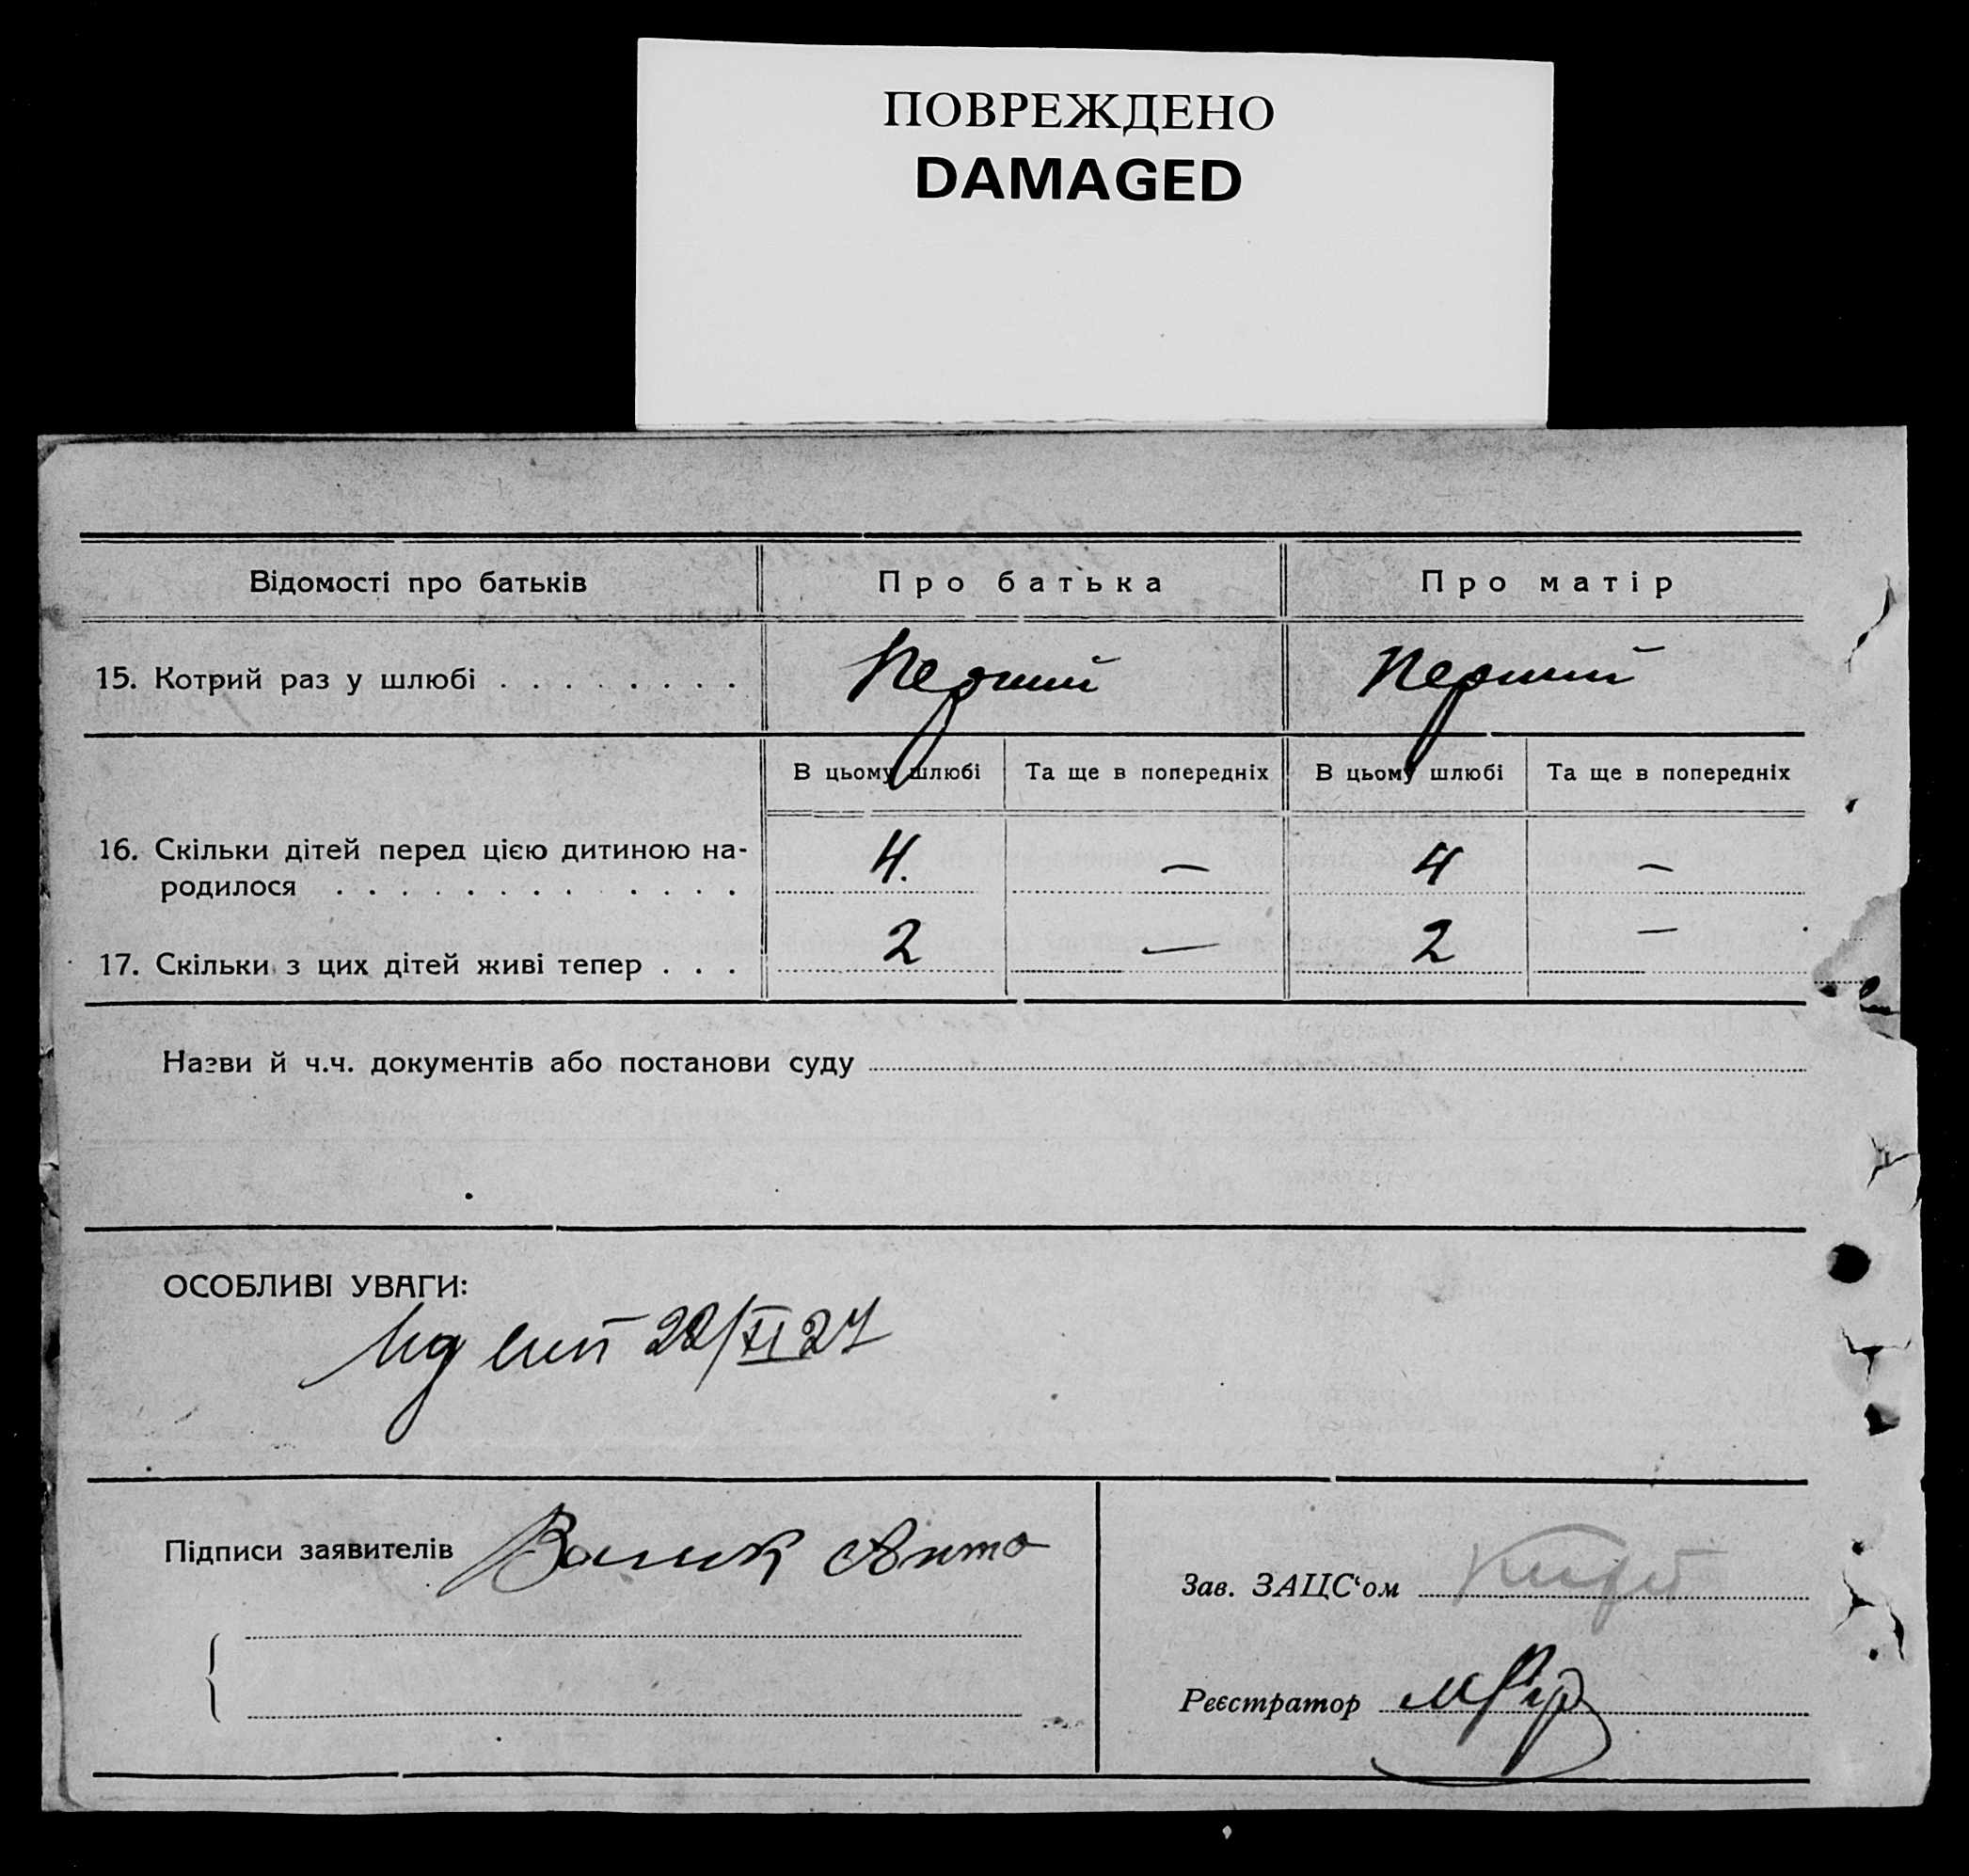 ПОВРЕЖДЕНО
DAMAGED
Відомості про батьків
Про батька
Про матір
15. Котрий раз у шлюбі . . . . . . . .
Перший
Перший
В цьому шлюбі
Та ще в попередніх
В цьому шлюбі
Та ще в попередніх
16. Скільки дітей перед цією дитиною на-
родилося . . . . . . . . . . . .
4.
—
4
—
17. Скільки з цих дітей живі тепер . . .
2
—
2
—
Назви й ч.ч. документів або постанови суду
ОСОБЛИВІ УВАГИ:
22/XI 27
Підписи заявителів
Зав. ЗАЦС‘ом
Реєстратор